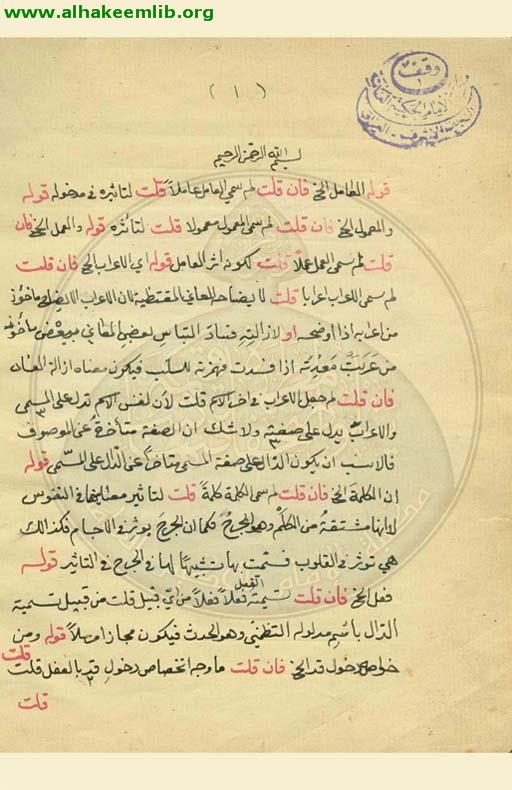 www.alhakeemlib.org
وقف
(١)
بسم الله الرحمن الرحيم
قوله للعامل الخ فان قلت لم سمي العامل عاملاً قلت لتاثيره في مدخوله قوله
والمعمول الخ فان قلت لم سمى المعمول معمولا قلت لتأثره قوله والعمل الخ فان
قلت لم سمى العمل عملاً قلت لكونه اثر العامل قوله اي الاعراب الخ فان قلت
لم سمى الاعراب اعرابا قلت لايضاحه المعاني المقتضية لان الاعراب الايضاح مأخوذ
من اعرابه اذا اوضحه او لازالته فساد التباس بعض المعاني ببعض مأخوذ
من عربت معدته اذا فسدت فهمزته للسلب فيكون معناه ازالة الفساد
فان قلت لم جعل الاعراب في اخر الاسم قلت لأن نفس الاسم تدل على المسمى
والاعراب يدل على صفته ولا شك ان الصفة متأخرة عن الموصوف
فالانسب ان يكون الدال على صفة المسمى متاخراً عن الدال على المسمى قوله
ان الكلمة الخ فان قلت لم سمى الكلمة كلمة قلت لتاثير معناها في النفوس
لانها مشتقة من الكلم وهو الجرح فكما ان الجرح يوثر في الاجسام فكذالك
هي توثر في القلوب فسمت بها تشبيهًا لها في الجرح في التاثير قوله
فعل الخ فان قلت تسمية الفعل فعلاً من اي قبيل قلت من قبيل تسمية
الدال باسم مدلوله التضمني وهو الحدث فيكون مجازا مرسلاً قوله ومن
خواصه دخول قد الخ فان قلت ما وجه اختصاص دخول قد بالفعل قلت
قلت